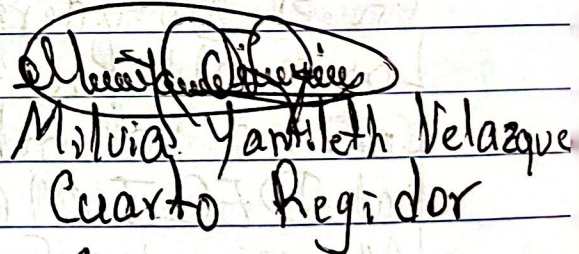 Milvia Yamileth Velazque
Cuarto Regidor